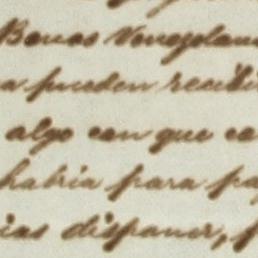 Bonos Venezolano
a pueden recibi
algo con que ca
habria para pa
ias disponer, p